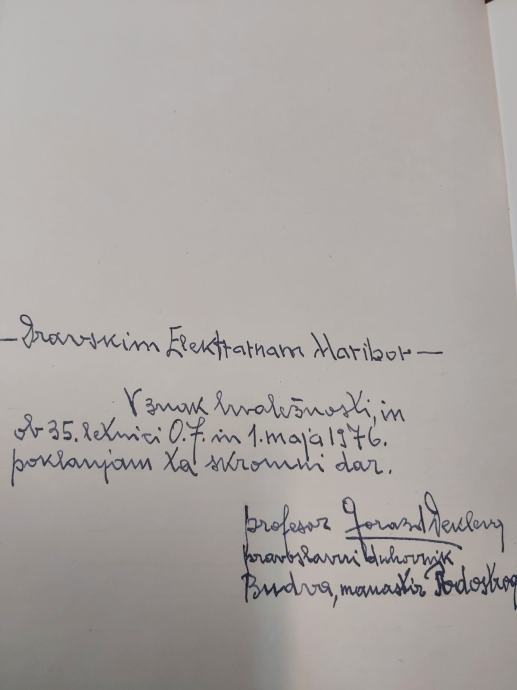 – Dravskim Elektrarnam Maribor –
V znak hvaležnosti, in
ob 35. letnici O.F. in 1. maja 1976.
poklanjam ta skromni dar.
profesor Gorazd Dekleva
pravoslavni duhovnik
Budva, manastir Podostrog